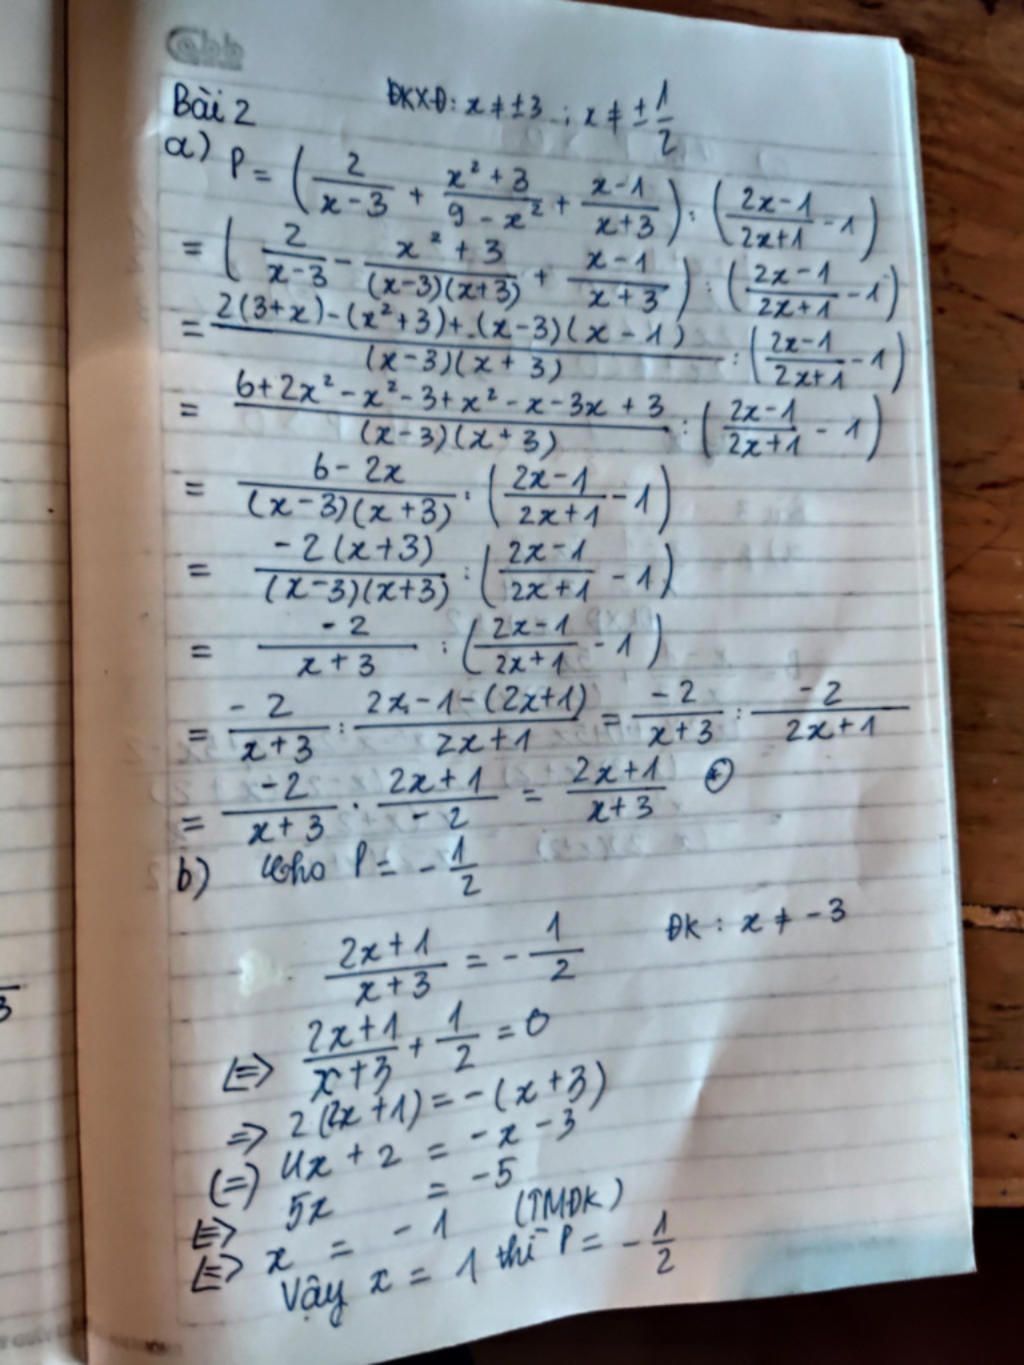 Bài 2 ĐKXĐ: x ≠ ±3 ; x ≠ ± 1/2
a) P = ( 2/(x-3) + (x²+3)/(9-x²) + (x-1)/(x+3) ) : ( (2x-1)/(2x+1) - 1 )
= ( 2/(x-3) - (x²+3)/((x-3)(x+3)) + (x-1)/(x+3) ) : ( (2x-1)/(2x+1) - 1 )
= (2(3+x)-(x²+3)+(x-3)(x-1))/((x-3)(x+3)) : ( (2x-1)/(2x+1) - 1 )
= (6+2x²-x²-3+x²-x-3x+3)/((x-3)(x+3)) : ( (2x-1)/(2x+1) - 1 )
= (6-2x)/((x-3)(x+3)) : ( (2x-1)/(2x+1) - 1 )
= (-2(x+3))/((x-3)(x+3)) : ( (2x-1)/(2x+1) - 1 )
= (-2)/(x+3) : ( (2x-1)/(2x+1) - 1 )
= (-2)/(x+3) : (2x-1-(2x+1))/(2x+1) = (-2)/(x+3) : (-2)/(2x+1)
= (-2)/(x+3) . (2x+1)/(-2) = (2x+1)/(x+3)
b) Cho P = - 1/2
(2x+1)/(x+3) = - 1/2 ĐK: x ≠ -3
(=) (2x+1)/(x+3) + 1/2 = 0
=> 2(2x+1) = -(x+3)
(=) 4x + 2 = -x - 3
(=) 5x = -5
(=) x = -1 (TMĐK)
Vậy x = 1 thì P = - 1/2
3